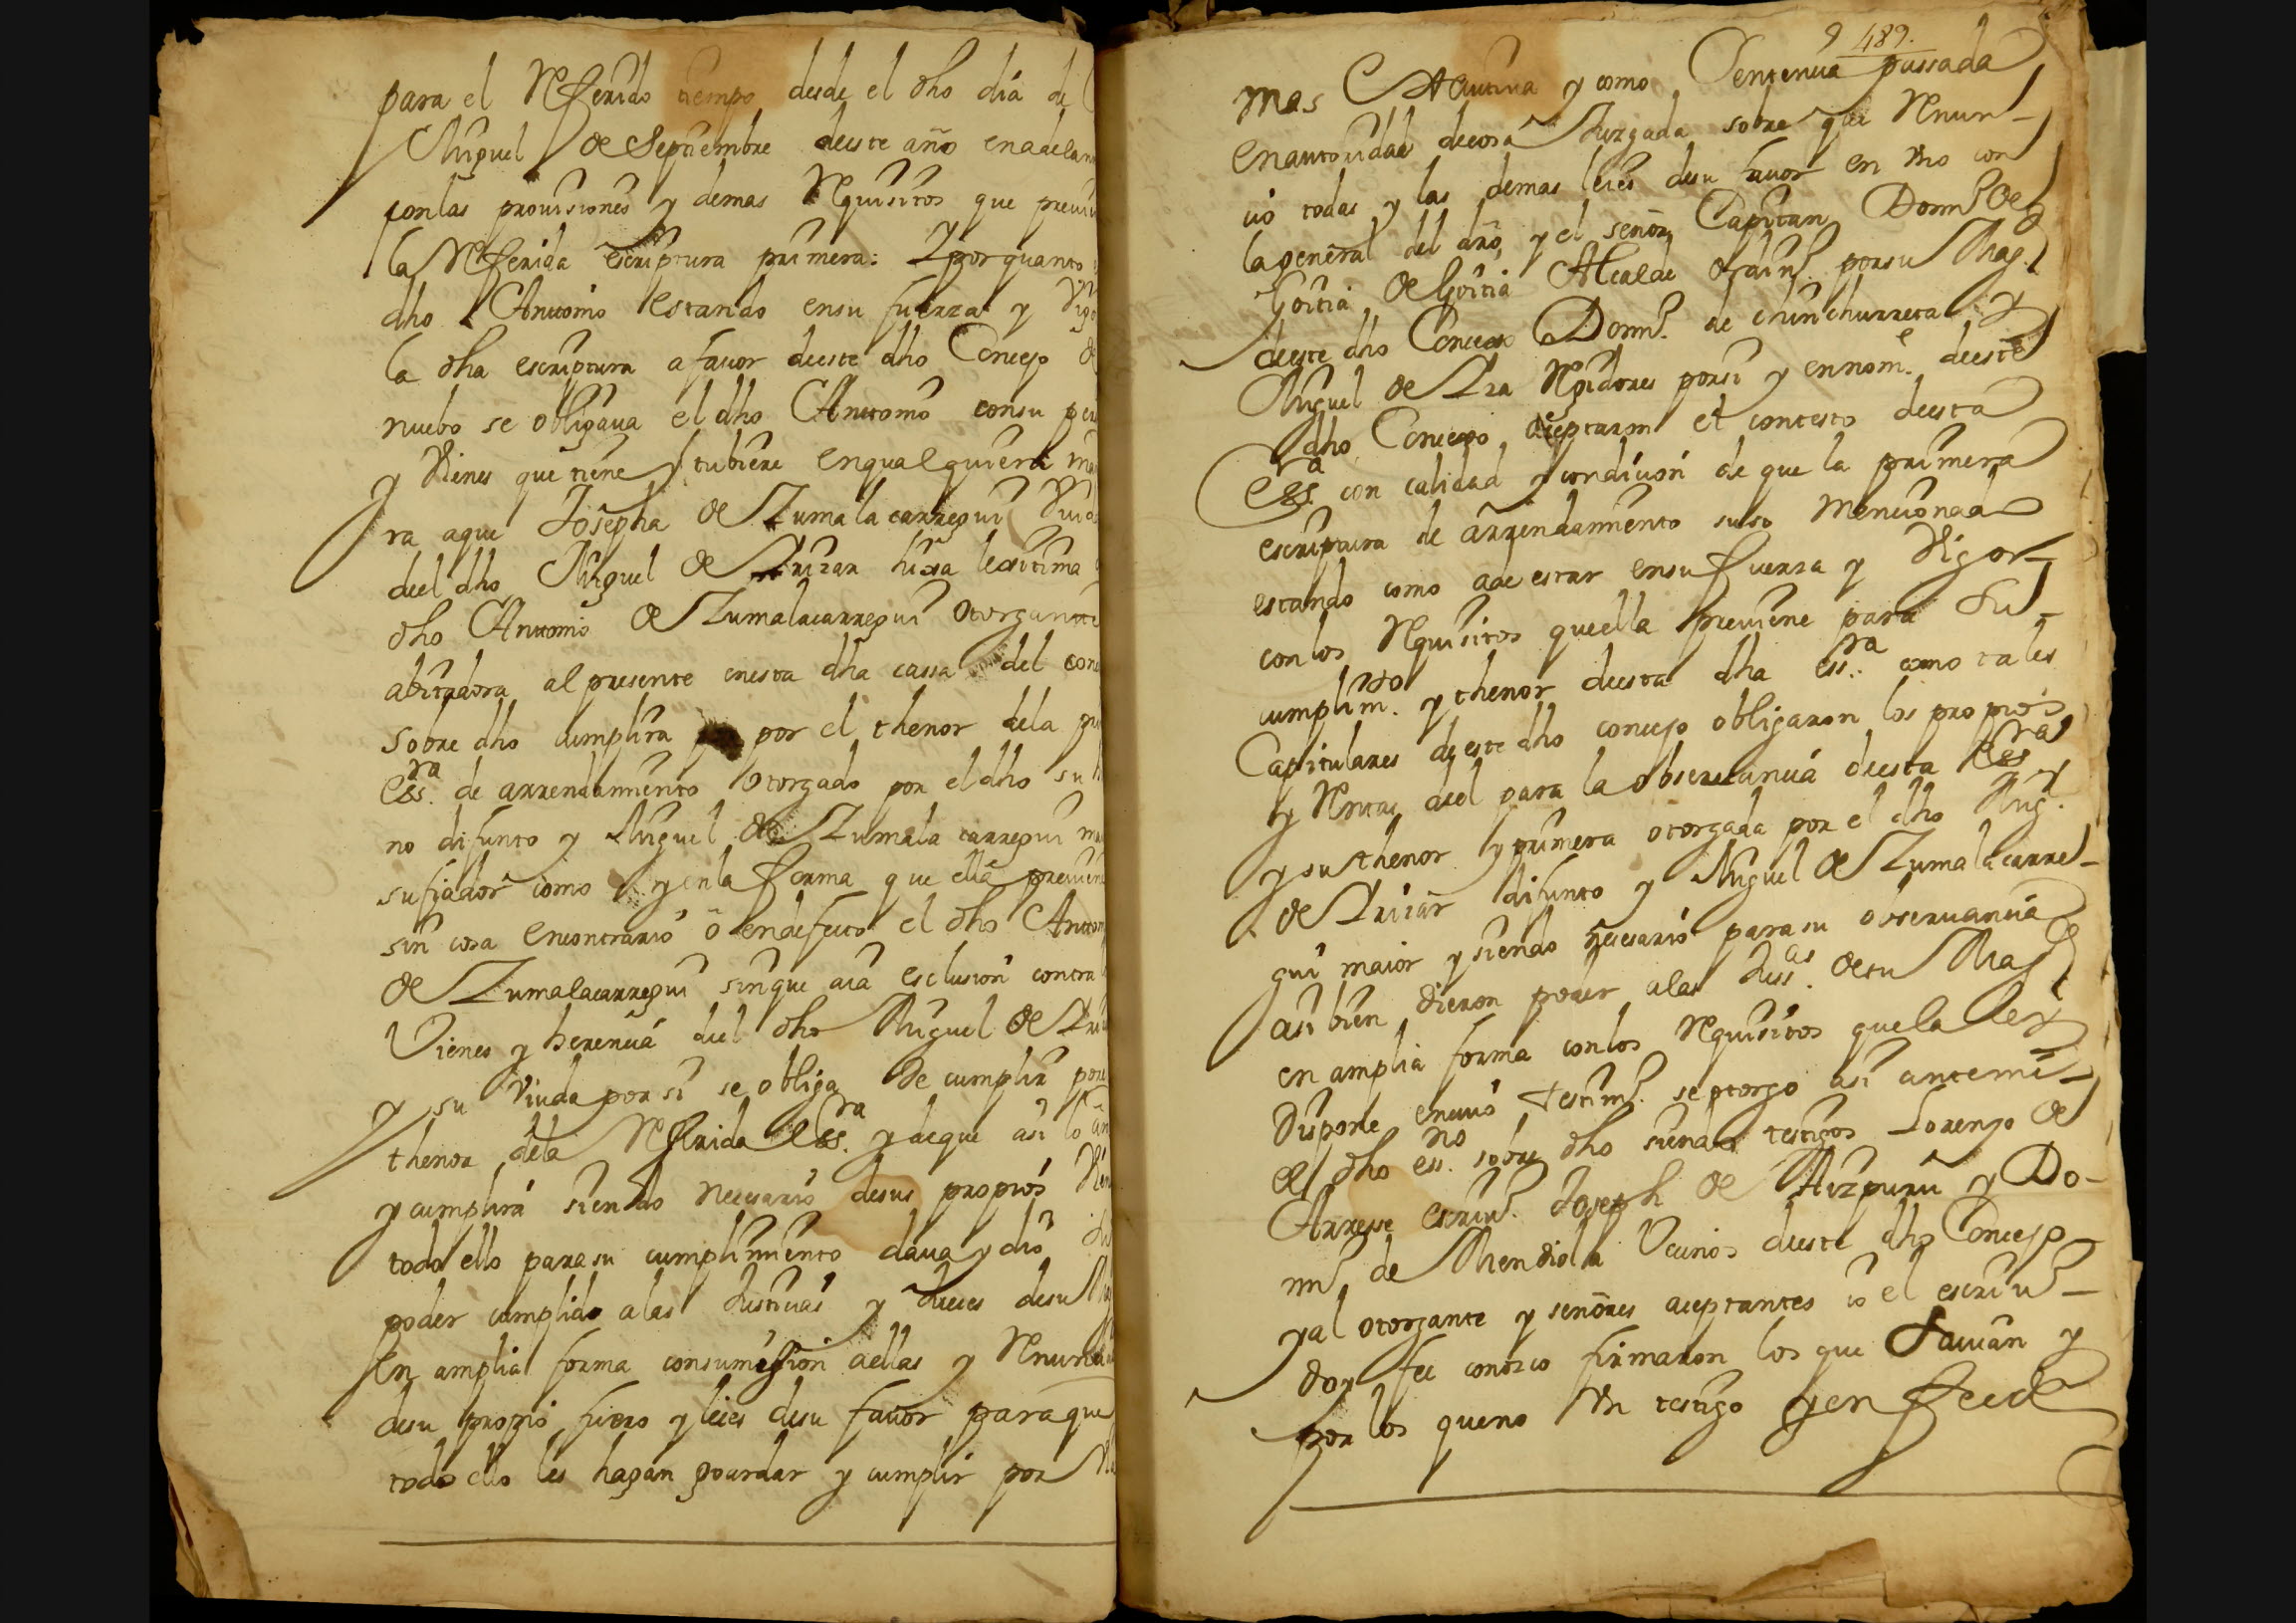 para el Referido tiempo desde el dho dia de
Miguel de Septiembre deeste año enadelan
conlas prouisiones y demas Requisitos que preuie
la Referida escriptura primera: Y por quanto
dho Antonio estando ensu fuerza y Vigo
la dha escriptura afauor deeste dho Concejo de
nuebo se obligaua el dho Antonio consu per
y Vienes que tiene y tubiere enqualquiera ma
ra aque Josepha de Zumalacarregui Viuda
deel dho Miguel de Irizar hixa lexitima
dho Antonio de Zumalacarregui otorgante
abitadora al presente enesta dha cassa del conc
sobre dho cumplira por el thenor dela pri
ess.ra de arrendamiento otorgado por el dho su
no difunto y Miguel de Zumalacarregui ma
sufiador como y enla forma que ella preuiene
sin cosa encontrario o endefecto el dho Anton
de Zumalacarregui sinque aia esclusion contra
Vienes y herencia deel dho Miguel de Iri
y su Viuda por si se obliga de cumplir por
thenor dela Referida ess.ra y deque asi lo
y cumplira siendo necesario desus propios Vien
todo ello parasu cumplimiento daua y dio
poder cumplido alas Justicias y Jueces desu
en amplia forma consumission aellas y Renunci
desu propio fuero y leies desu fauor paraque
todo ello les hagan guardar y cumplir por
9 489.
mas executiua y como Sentencia passada
enautoridad decosa Juzgada sobre que Renun-
cio todas y las demas leies desu fauor en Vno con
lageneral del dro, y el señor Capitan Dom.o de
Goitia de Goitia Alcalde ordin.o porsu Mag.d
deeste dho Concejo Dom.o de chinchurreta y
Miguel de Iza Regidores porsi y ennom.e deeste
dho Concejo aceptaron el contesto deesta
ess.ra con calidad y condicion de que la primera
escriptura de arrendamiento suso mencionada
estando como ade estar ensu fuerza y Vigor
conlos Requisitos queella preuiene para su
cumplim.to y thenor deesta dha ess.ra como tales
Capitulares deeste dho concejo obligaron los propios
y Rentas deel para la obseruancia deesta ess.ra
y su thenor y primera otorgada por el dho Mig.l
de Irizar difunto y Miguel de Zumalacarre-
gui maior y siendo necesario parasu obseruancia
asi bien dieron poder alas Juss.as desu Mag.d
en amplia forma conlos Requisitos quela ley
dispone encuio testim.o seotorgo asi antemi
el dho ess.no sobre dho siendo testigos Lorenzo de
Arrese escriu.o Joseph de Aizpuru y Do-
m.o de Mendiola Vecinos deeste dho Concejo
yal otorgante y señores aceptantes io el escriu.o
doy fee conozco firmaron los que sauian y
por los queno Vn testigo y en fee de